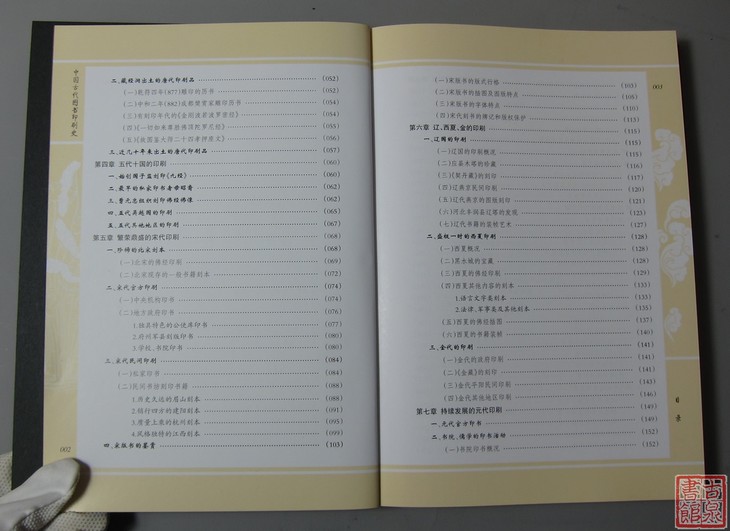 中国古代图书印刷史
二、藏经洞出土的唐代印刷品 (052)
(一)乾符四年(877)雕印的历书 (052)
(二)中和二年(882)成都樊赏家雕印历书 (054)
(三)有刻印年代的《金刚波若波罗密经》 (054)
(四)《一切如来尊胜佛顶陀罗尼经》 (055)
(五)《故圆鉴大师二十四孝押座文》 (057)
三、近几十年来出土的唐代印刷品 (057)
第四章 五代十国的印刷 (060)
一、始创国子监刻印《九经》 (060)
二、最早的私家印书者毋昭裔 (062)
三、曹元忠组织刻印佛经佛像 (062)
四、五代吴越国的印刷 (064)
五、五代其他地区的印刷 (067)
第五章 繁荣鼎盛的宋代印刷 (068)
一、珍稀的北宋刻本 (068)
(一)北宋的佛经印刷 (069)
(二)北宋现存的一般书籍刻本 (072)
二、宋代官方印刷 (074)
(一)中央机构印书 (074)
(二)地方政府印书 (076)
1.独具特色的公使库印书 (077)
2.府州军县刻版印书 (080)
3.学校、书院印书 (080)
三、宋代民间印刷 (084)
(一)私家印书 (084)
(二)民间书坊刻印书籍 (088)
1.历史久远的眉山刻本 (088)
2.销行四方的建阳刻本 (091)
3.质量上乘的杭州刻本 (095)
4.风格独特的江西刻本 (099)
四、宋版书的鉴赏 (103)
002
003
(一)宋版书的版式行格 (103)
(二)宋版书的插图及图版特点 (105)
(三)宋版书的字体特点 (110)
(四)宋代刻书的牌记和版权保护 (115)
第六章 辽、西夏、金的印刷 (116)
一、辽国的印刷 (116)
(一)辽国的印刷概况 (116)
(二)应县木塔的珍藏 (116)
(三)《契丹藏》的刻印 (117)
(四)辽燕京民间印刷 (120)
(五)辽代燕京的图版刻印 (121)
(六)河北丰润县辽塔的发现 (123)
(七)辽代书籍的装帧艺术 (127)
二、盛极一时的西夏印刷 (128)
(一)西夏概况 (128)
(二)黑水城的宝藏 (128)
(三)西夏的佛经印刷 (128)
(四)西夏其他内容的刻本 (135)
1.语言文字类刻本 (135)
2.法律、军事类及其他刻本 (135)
(五)西夏的佛经插图 (137)
(六)西夏的书籍装帧 (140)
三、金代的印刷 (141)
(一)金代的政府印刷 (141)
(二)《金藏》的刻印 (141)
(三)金代平阳民间印刷 (144)
(四)金代其他地区印刷 (148)
第七章 持续发展的元代印刷 (149)
一、元代官方印书 (149)
二、书院、儒学的印书活动 (152)
(一)书院印书概况 (152)
目录
古泉書館